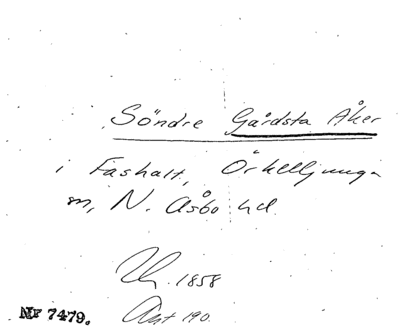 Söndre Gårdsta Åker
i Fashalt, Örkelljunga
sn, N. Åsbo hd
1858
Akt 190.
Nr 7479.